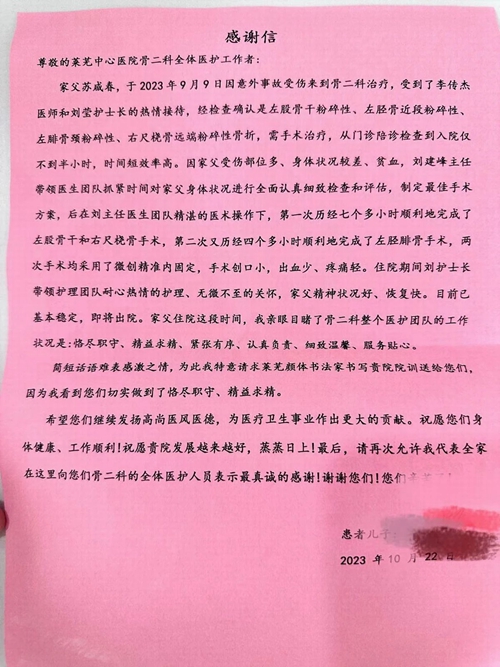 感谢信
尊敬的莱芜中心医院骨二科全体医护工作者：
家父苏成春，于2023年9月9日因意外事故受伤来到骨二科治疗，受到了李传杰
医师和刘莹护士长的热情接待，经检查确认是左股骨干粉碎性、左胫骨近段粉碎性、
左腓骨颈粉碎性、右尺桡骨远端粉碎性骨折，需手术治疗，从门诊陪诊检查到入院仅
不到半小时，时间短效率高。因家父受伤部位多、身体状况较差、贫血，刘建峰主任
带领医生团队抓紧时间对家父身体状况进行全面认真细致检查和评估，制定最佳手术
方案，后在刘主任医生团队精湛的医术操作下，第一次历经七个多小时顺利地完成了
左股骨干和右尺桡骨手术，第二次又历经四个多小时顺利地完成了左胫腓骨手术，两
次手术均采用了微创精准内固定，手术创口小，出血少、疼痛轻。住院期间刘护士长
带领护理团队耐心热情的护理、无微不至的关怀，家父精神状况好、恢复快。目前已
基本稳定，即将出院。家父住院这段时间，我亲眼目睹了骨二科整个医护团队的工作
状况是：恪尽职守、精益求精、紧张有序、认真负责、细致温馨、服务贴心。
简短话语难表感激之情，为此我特意请求莱芜颜体书法家书写贵院院训送给您们，
因为我看到您们切实做到了恪尽职守、精益求精。
希望您们继续发扬高尚医风医德，为医疗卫生事业作出更大的贡献。祝愿您们身
体健康、工作顺利！祝愿贵院发展越来越好，蒸蒸日上！最后，请再次允许我代表全家
在这里向您们骨二科的全体医护人员表示最真诚的感谢！谢谢您们！您们
患者儿子：
2023 年 10 月 22 日